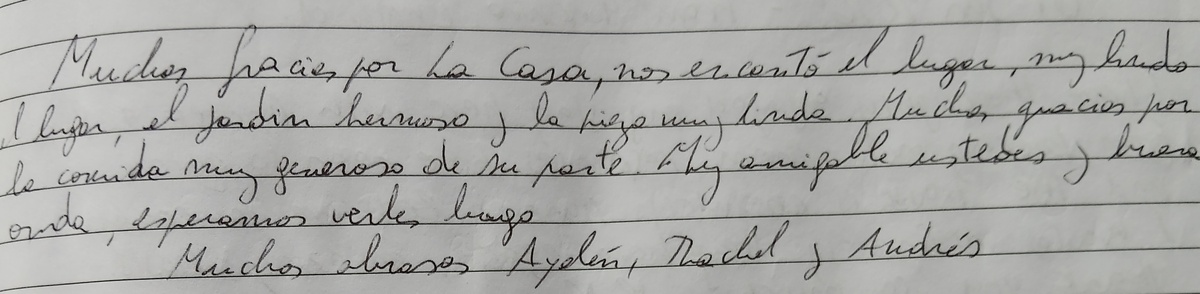 Muchas gracias por La Casa, nos encantó el lugar, muy lindo
l lugar, el jardin hermoso y la muy linda. Muchas gracias por
la comida muy generoso de su parte. My amigable ustedes y buena
onda, esperamos verles luego
Muchos abrasos Aylén, y Andrés